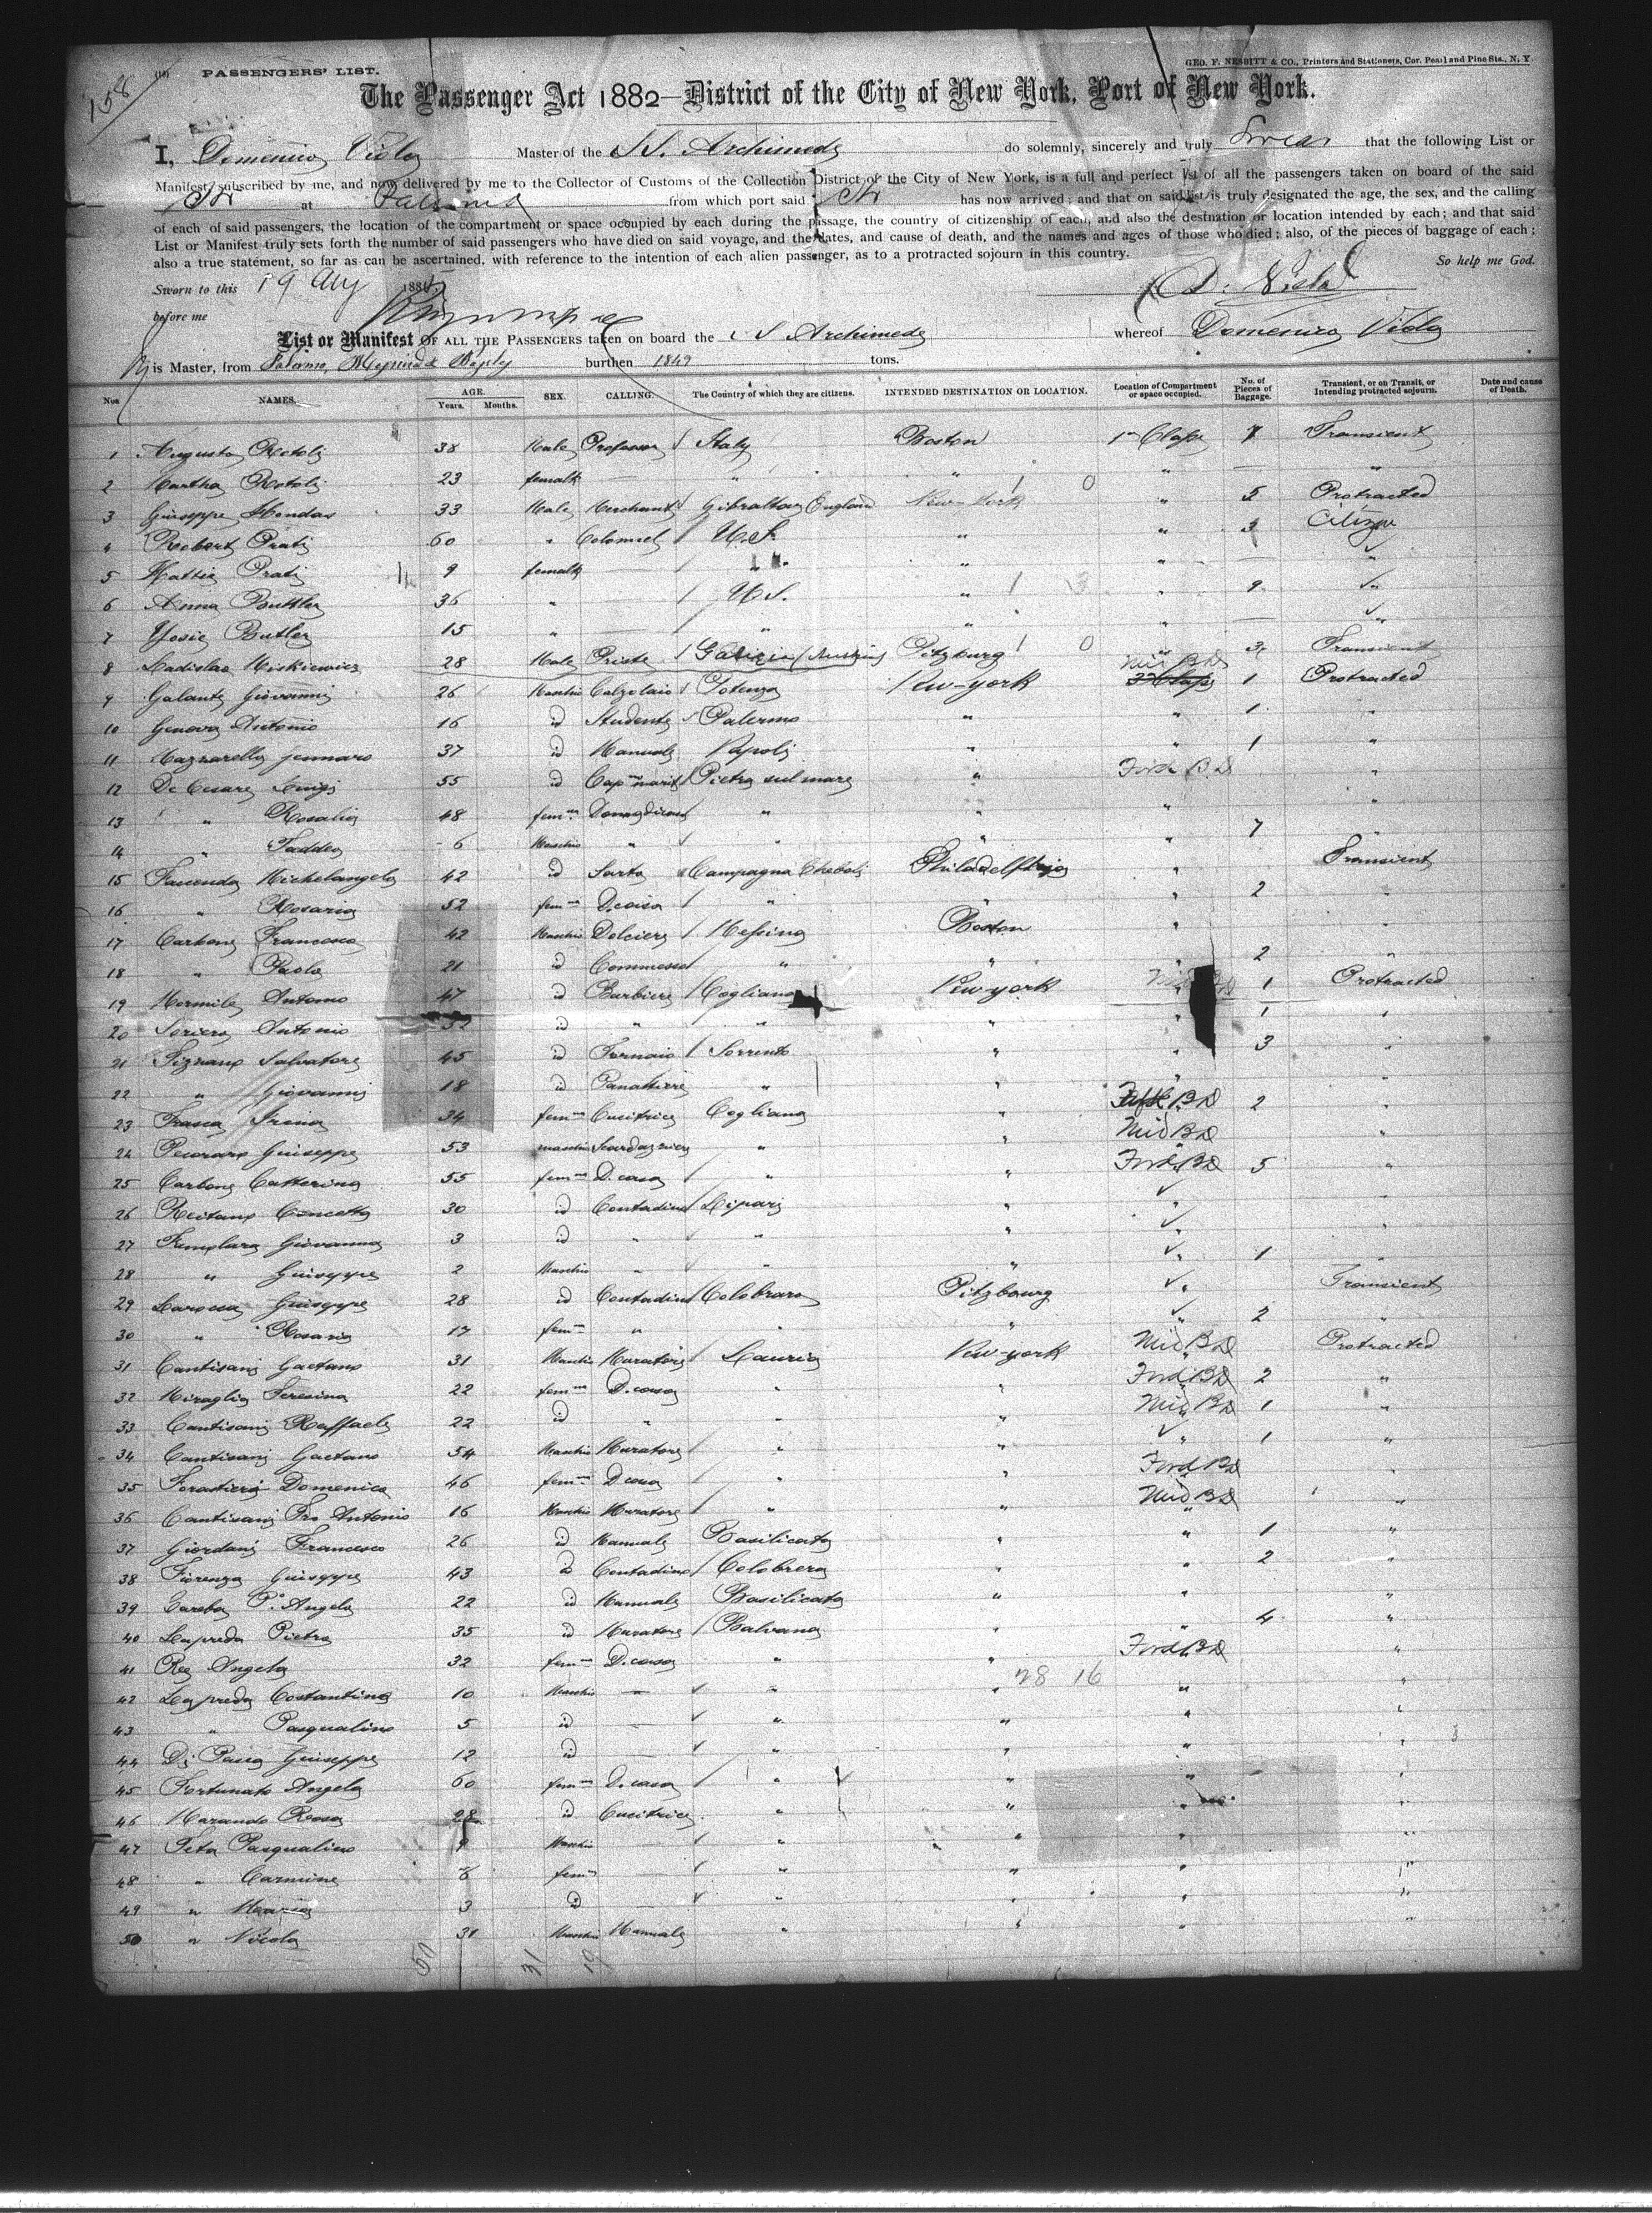 158
(10) PASSENGERS' LIST.
GEO. F. NESBITT & CO., Printers and Stationers, Cor. Pearl and Pine Sts., N. Y.
The Passenger Act 1882—District of the City of New York, Port of New York.
I, Domenico Viola Master of the SS. Archimede do solemnly, sincerely and truly Swear that the following List or
Manifest, subscribed by me, and now delivered by me to the Collector of Customs of the Collection District of the City of New York, is a full and perfect list of all the passengers taken on board of the said
Str at from which port said Str has now arrived; and that on said list is truly designated the age, the sex, and the calling
of each of said passengers, the location of the compartment or space occupied by each during the passage, the country of citizenship of each, and also the destination or location intended by each; and that said
List or Manifest truly sets forth the number of said passengers who have died on said voyage, and the dates, and cause of death, and the names and ages of those who died; also, of the pieces of baggage of each;
also a true statement, so far as can be ascertained, with reference to the intention of each alien passenger, as to a protracted sojourn in this country. So help me God.
Sworn to this 19 188 D. Viola
before me
List or Manifest OF ALL THE PASSENGERS taken on board the SS Archimede whereof Domenico Viola
is Master, from Palermo, burthen 1849 tons.
Nos NAMES. AGE. Years. Months. SEX. CALLING. The Country of which they are citizens. INTENDED DESTINATION OR LOCATION. Location of Compartment or space occupied. No. of Pieces of Baggage. Transient, or on Transit, or Intending protracted sojourn. Date and cause of Death.
1 Augusto Rotoli 38 Male Professor Italy Boston 1st Class 7 Transient
2 Martha Rotoli 23 female — " " " — "
3 Giuseppe 33 Male Merchant Gibraltar England New-York " 5 Protracted
4 Robert Prati 60 " Colonnel U.S. " " 3 Citizen
5 Hattie Prati 9 female — " " " " — "
6 Anna Buttler 36 " — U.S. " " 9 "
7 Josie Butler 15 " — " " " — "
8 Ladislao Miskiewicz 28 Male Priste Galizia (Austria) Pitzburg " 3 Transient
9 Galante Giovanni 26 Maschio Calzolaio Potenza New-york Mid BD 1 Protracted
10 Genova Antonio 16 id Studente Palermo " " 1 "
11 Mazzarella Gennaro 37 id Manuale Napoli " " 1 "
12 De Cesare Luigi 55 id Cap. marit. Pietra sul mare " Ford B.D "
13 " Rosalia 48 fem " " " "
14 " Taddeo 6 Maschio " " " " 7 "
15 Facenda Michelangelo 42 id Sarto Campagna Philadelfhia " Transient
16 " Rosaria 52 fem D. casa " " " 2 "
17 Carbone Francesco 42 Maschio Dolciere Messina Boston " "
18 " Paolo 21 id Commesso " " " 2 "
19 Mormile Antonio 47 id Barbiere Cogliano New-york 1 Protracted
20 Soriero Antonio 52 id " " " " 1 "
21 Salvatore 45 id Fornaio Sorrento " " 3 "
22 " Giovanni 18 id Panattiere " " " "
23 Frasca Irena 34 fem Cucitrice Cogliano " BD 2 "
24 Pecoraro Giuseppe 53 maschio " " Mid BD "
25 Carbone Catterina 55 fem D. casa " " Ford BD 5 "
26 Reitano Concetta 30 id Contadina Lipari " " "
27 Giovanna 3 id " " " " "
28 " Giuseppe 2 Maschio " " " " 1 "
29 Larossa Giuseppe 28 id Contadino Colobraro Pitzbourg " Transient
30 " Rosaria 17 fem " " " " 2 "
31 Cantisani Gaetano 31 Maschio Muratore Lauria New-york Mid BD Protracted
32 Miraglia Teresina 22 fem D. casa " " Ford BD 2 "
33 Cantisani Raffaele 22 id " " " Mid BD 1 "
34 Cantisani Gaetano 54 Maschio Muratore " " " 1 "
35 Forastieri Domenica 46 fem D casa " " Ford BD "
36 Cantisani Antonio 16 Maschio Muratore " " Mid BD "
37 Giordani Francesco 26 id Manuale Basilicata " " 1 "
38 Fiorenza Giuseppe 43 id Contadino Colobrera " " 2 "
39 Angelo 22 id Manuale Basilicata " " "
40 Lapreda Pietro 35 id Muratore Balvano " " 4 "
41 Angela 32 fem D. casa " " Ford BD "
28 16
42 Lapreda Costantino 10 Maschio — " " " "
43 " Pasqualino 5 id — " " " "
44 Di Giuseppe 12 id — " " " "
45 Fortunato Angela 60 fem D. casa " " " "
46 Marando Rosa 28 id Cucitrice " " " "
47 Teta Pasqualino 9 Maschio — " " " "
48 " Carmine 6 fem — " " " "
49 " Maria 3 id — " " " "
50 " Nicola 31 Maschio Manuale " " " "
50 31 19